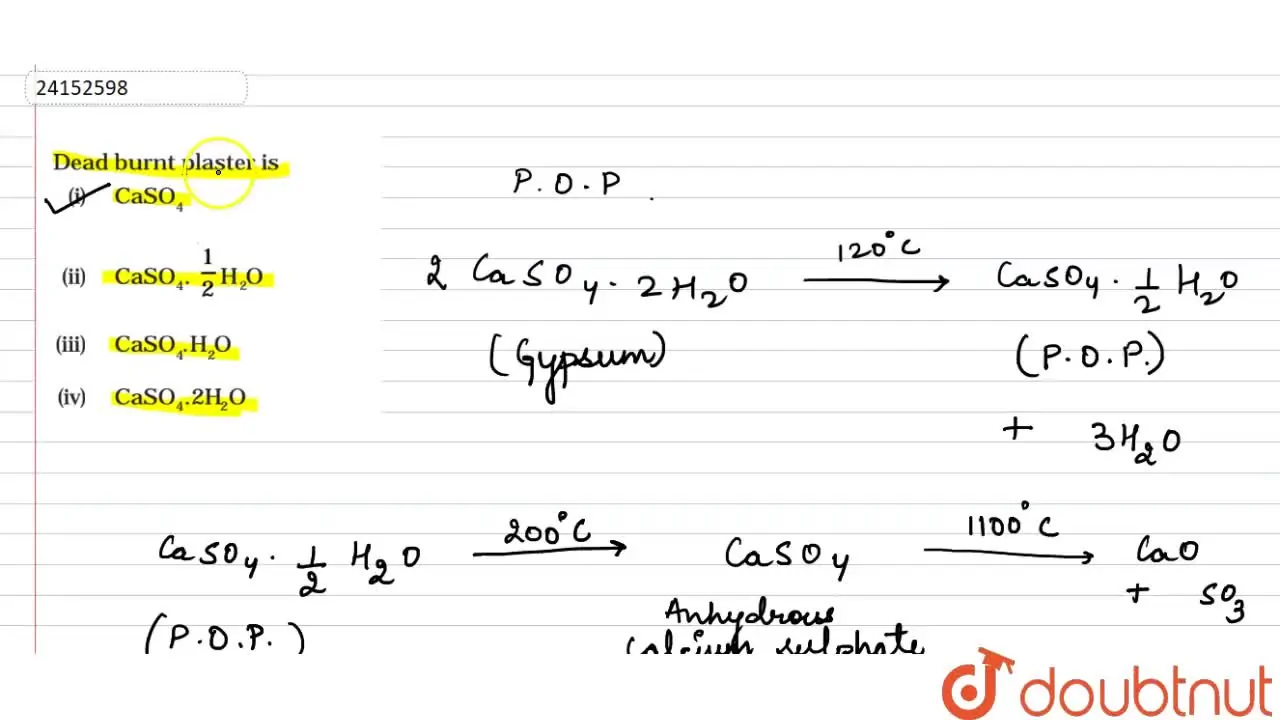 24152598
Dead burnt plaster is
(i) CaSO₄
(ii) CaSO₄. 1/2 H₂O
(iii) CaSO₄.H₂O
(iv) CaSO₄.2H₂O
P.O.P.
2 CaSO₄. 2H₂O 120°C → CaSO₄. 1/2 H₂O
(Gypsum) (P.O.P.)
+ 3H₂O
CaSO₄. 1/2 H₂O 200°C → CaSO₄ 1100°C → CaO
+ SO₃
(P.O.P.) Anhydrous
calcium sulphate
doubtnut